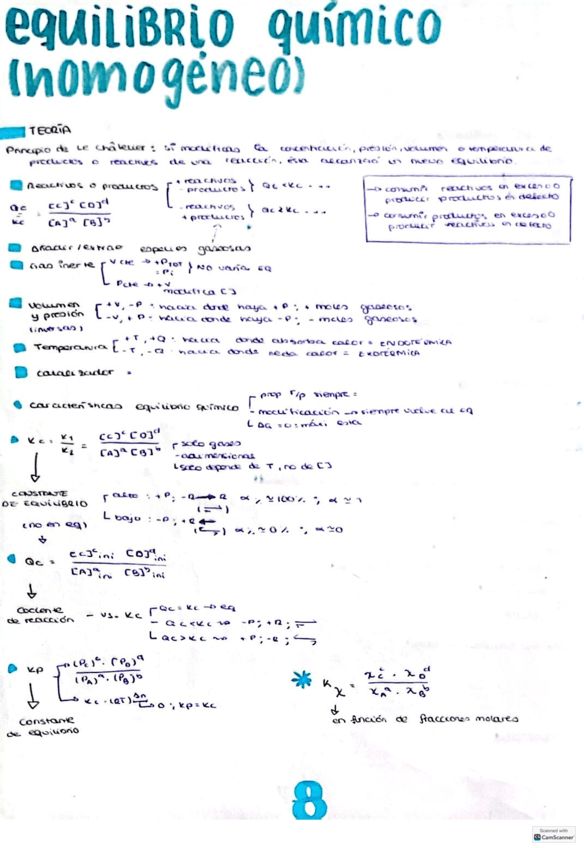 equilibrio químico
(homogéneo)
TEORÍA
Principio de Le Châtelier: si modificas la concentración, presión, volumen o temperatura de
productos o reactivos de una reacción, ésta alcanzará un nuevo equilibrio.
Reactivos o productos + reactivos - productos } Qc < Kc ...
Qc/Kc = [C]^c [D]^d / [A]^a [B]^b - reactivos + productos } Qc > Kc ...
→ consumir reactivos en exceso o
producir productos en defecto
→ consumir productos en exceso o
producir reactivos en defecto
Añadir/extraer especies gaseosas
Gas inerte V cte → +P TOT = Pi } NO varía EQ
P cte → +V
modifica [ ]
Volumen +V, -P : hacia donde haya +P ; + moles gaseosos
y presión -V, +P : hacia donde haya -P ; - moles gaseosos
(inversas)
Temperatura +T, +Q : hacia donde absorba calor = ENDOTÉRMICA
-T, -Q : hacia donde ceda calor = EXOTÉRMICA
catalizador
características equilibrio químico prop r/p siempre =
- modificación → siempre vuelve al EQ
ΔG = 0
Kc = K1/K2 = [C]^c [D]^d / [A]^a [B]^b solo gases
- adimensional
solo depende de T, no de [ ]
CONSTANTE
DE EQUILIBRIO alto : +P ; -R → α % ≃ 100% ; α ≃ 1
(no en eq) bajo : -P ; +R ← α % ≃ 0% ; α ≃ 0
Qc = [C]^c ini [D]^d ini / [A]^a ini [B]^b ini
cociente
de reacción - vs. Kc Qc = Kc → eq
- Qc < Kc → -P ; +R ;
Qc > Kc → +P ; -R ;
Kp → (Pc)^c · (PD)^d / (PA)^a · (PB)^b
→ Kc · (RT)^Δn → 0 ; Kp = Kc
Constante
de equilibrio
Kχ = χC^c · χD^d / χA^a · χB^b
en función de fracciones molares
8
Scanned with
CamScanner